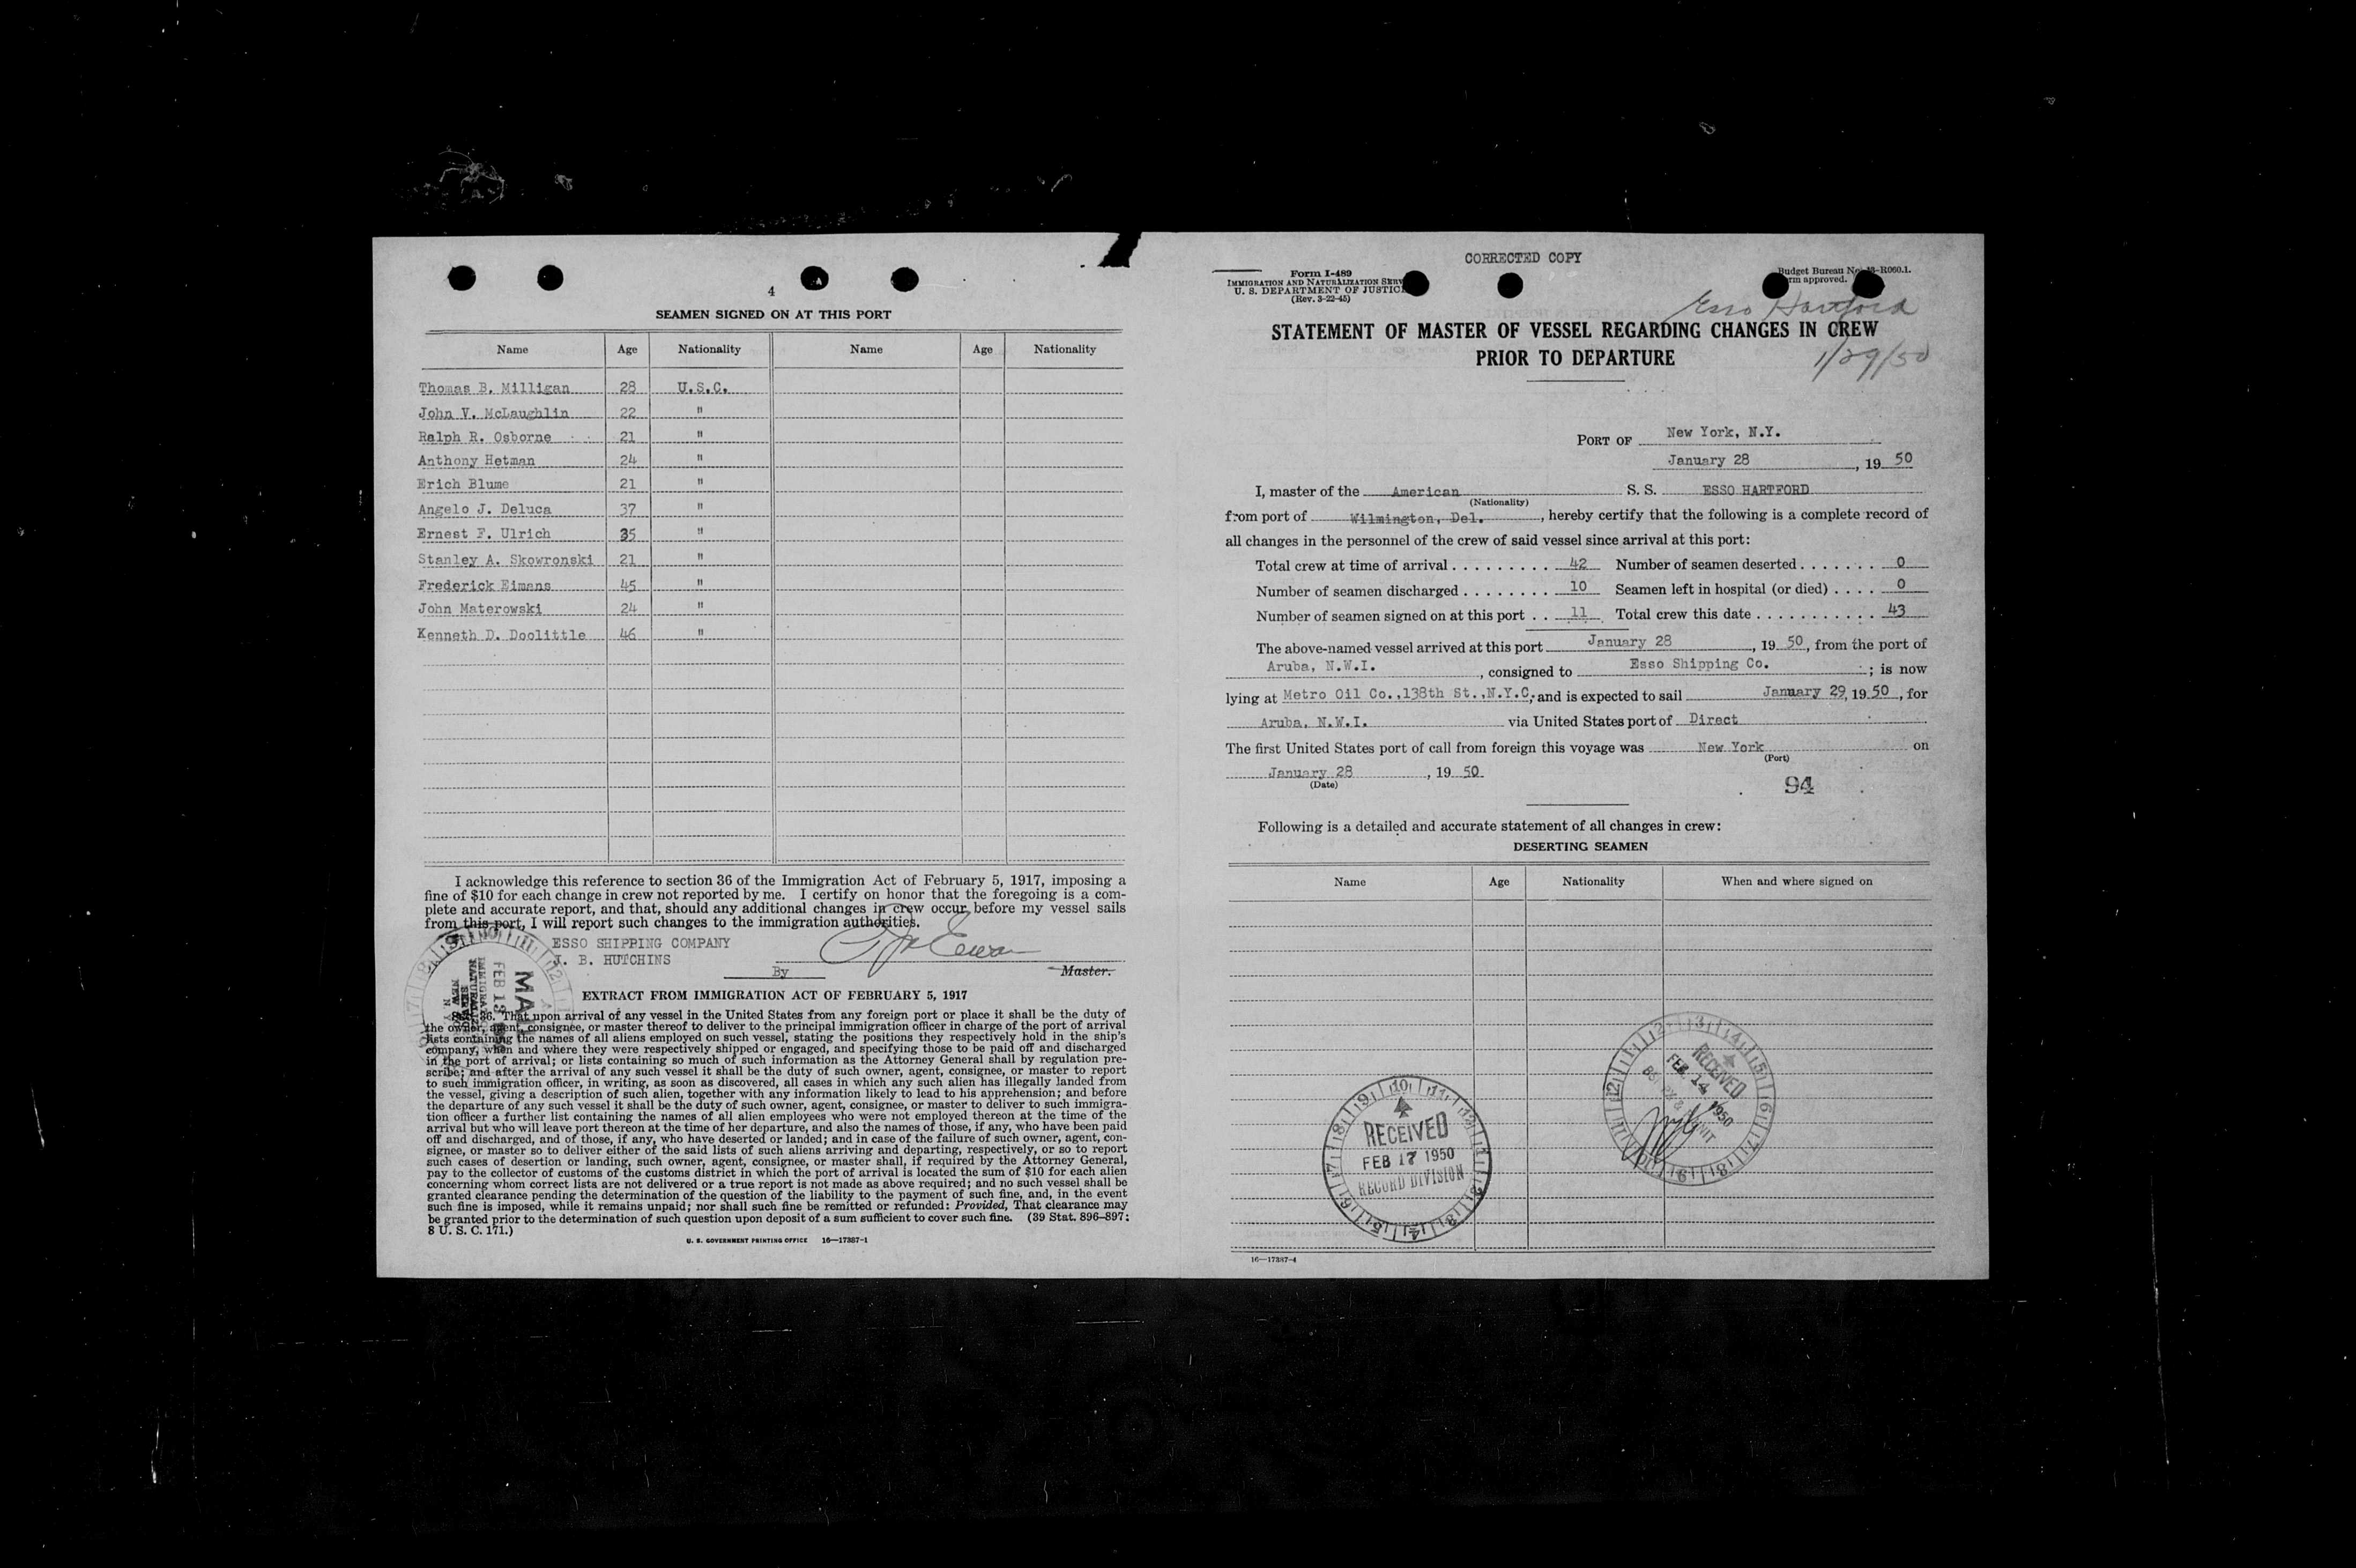 4
SEAMEN SIGNED ON AT THIS PORT
Name Age Nationality Name Age Nationality
Thomas B. Milligan 28 U.S.C.
John V. McLaughlin 22 "
Ralph R. Osborne 21 "
Anthony Hetman 24 "
Erich Blume 21 "
Angelo J. Deluca 37 "
Ernest F. Ulrich 35 "
Stanley A. Skowronski 21 "
Frederick Eimans 45 "
John Materowski 24 "
Kenneth D. Doolittle 46 "
I acknowledge this reference to section 36 of the Immigration Act of February 5, 1917, imposing a
fine of $10 for each change in crew not reported by me. I certify on honor that the foregoing is a com-
plete and accurate report, and that, should any additional changes in crew occur before my vessel sails
from this port, I will report such changes to the immigration authorities.
ESSO SHIPPING COMPANY
B. HUTCHINS
By Master.
MAIL
FEB 13
EXTRACT FROM IMMIGRATION ACT OF FEBRUARY 5, 1917
Sec. 36. That upon arrival of any vessel in the United States from any foreign port or place it shall be the duty of
the owner, agent, consignee, or master thereof to deliver to the principal immigration officer in charge of the port of arrival
lists containing the names of all aliens employed on such vessel, stating the positions they respectively hold in the ship's
company, when and where they were respectively shipped or engaged, and specifying those to be paid off and discharged
in the port of arrival; or lists containing so much of such information as the Attorney General shall by regulation pre-
scribe; and after the arrival of any such vessel it shall be the duty of such owner, agent, consignee, or master to report
to such immigration officer, in writing, as soon as discovered, all cases in which any such alien has illegally landed from
the vessel, giving a description of such alien, together with any information likely to lead to his apprehension; and before
the departure of any such vessel it shall be the duty of such owner, agent, consignee, or master to deliver to such immigra-
tion officer a further list containing the names of all alien employees who were not employed thereon at the time of the
arrival but who will leave port thereon at the time of her departure, and also the names of those, if any, who have been paid
off and discharged, and of those, if any, who have deserted or landed; and in case of the failure of such owner, agent, con-
signee, or master so to deliver either of the said lists of such aliens arriving and departing, respectively, or so to report
such cases of desertion or landing, such owner, agent, consignee, or master shall, if required by the Attorney General,
pay to the collector of customs of the customs district in which the port of arrival is located the sum of $10 for each alien
concerning whom correct lists are not delivered or a true report is not made as above required; and no such vessel shall be
granted clearance pending the determination of the question of the liability to the payment of such fine, and, in the event
such fine is imposed, while it remains unpaid; nor shall such fine be remitted or refunded: Provided, That clearance may
be granted prior to the determination of such question upon deposit of a sum sufficient to cover such fine. (39 Stat. 896–897;
8 U. S. C. 171.)
U. S. GOVERNMENT PRINTING OFFICE 16—17387-1
CORRECTED COPY
Form I-489
IMMIGRATION AND NATURALIZATION SERV
U. S. DEPARTMENT OF JUSTIC
(Rev. 3-22-45)
Budget Bureau No. -R060.1.
rm approved.
Esso Hartford
STATEMENT OF MASTER OF VESSEL REGARDING CHANGES IN CREW
PRIOR TO DEPARTURE
1/29/50
PORT OF New York, N.Y.
January 28, 19 50
I, master of the American S. S. ESSO HARTFORD
(Nationality)
from port of Wilmington, Del., hereby certify that the following is a complete record of
all changes in the personnel of the crew of said vessel since arrival at this port:
Total crew at time of arrival . . . . . . . . . 42 Number of seamen deserted . . . . . . . 0
Number of seamen discharged . . . . . . . . 10 Seamen left in hospital (or died) . . . . 0
Number of seamen signed on at this port . . 11 Total crew this date . . . . . . . . . . . 43
The above-named vessel arrived at this port January 28, 19 50, from the port of
Aruba, N.W.I., consigned to Esso Shipping Co.; is now
lying at Metro Oil Co.,138th St.,N.Y.C, and is expected to sail January 29, 19 50, for
Aruba, N.W.I. via United States port of Direct
The first United States port of call from foreign this voyage was New York on
(Port)
January 28, 19 50.
(Date)
94
Following is a detailed and accurate statement of all changes in crew:
DESERTING SEAMEN
Name Age Nationality When and where signed on
RECEIVED
FEB 14 1950
RECEIVED
FEB 17 1950
RECORD DIVISION
16—17387-4